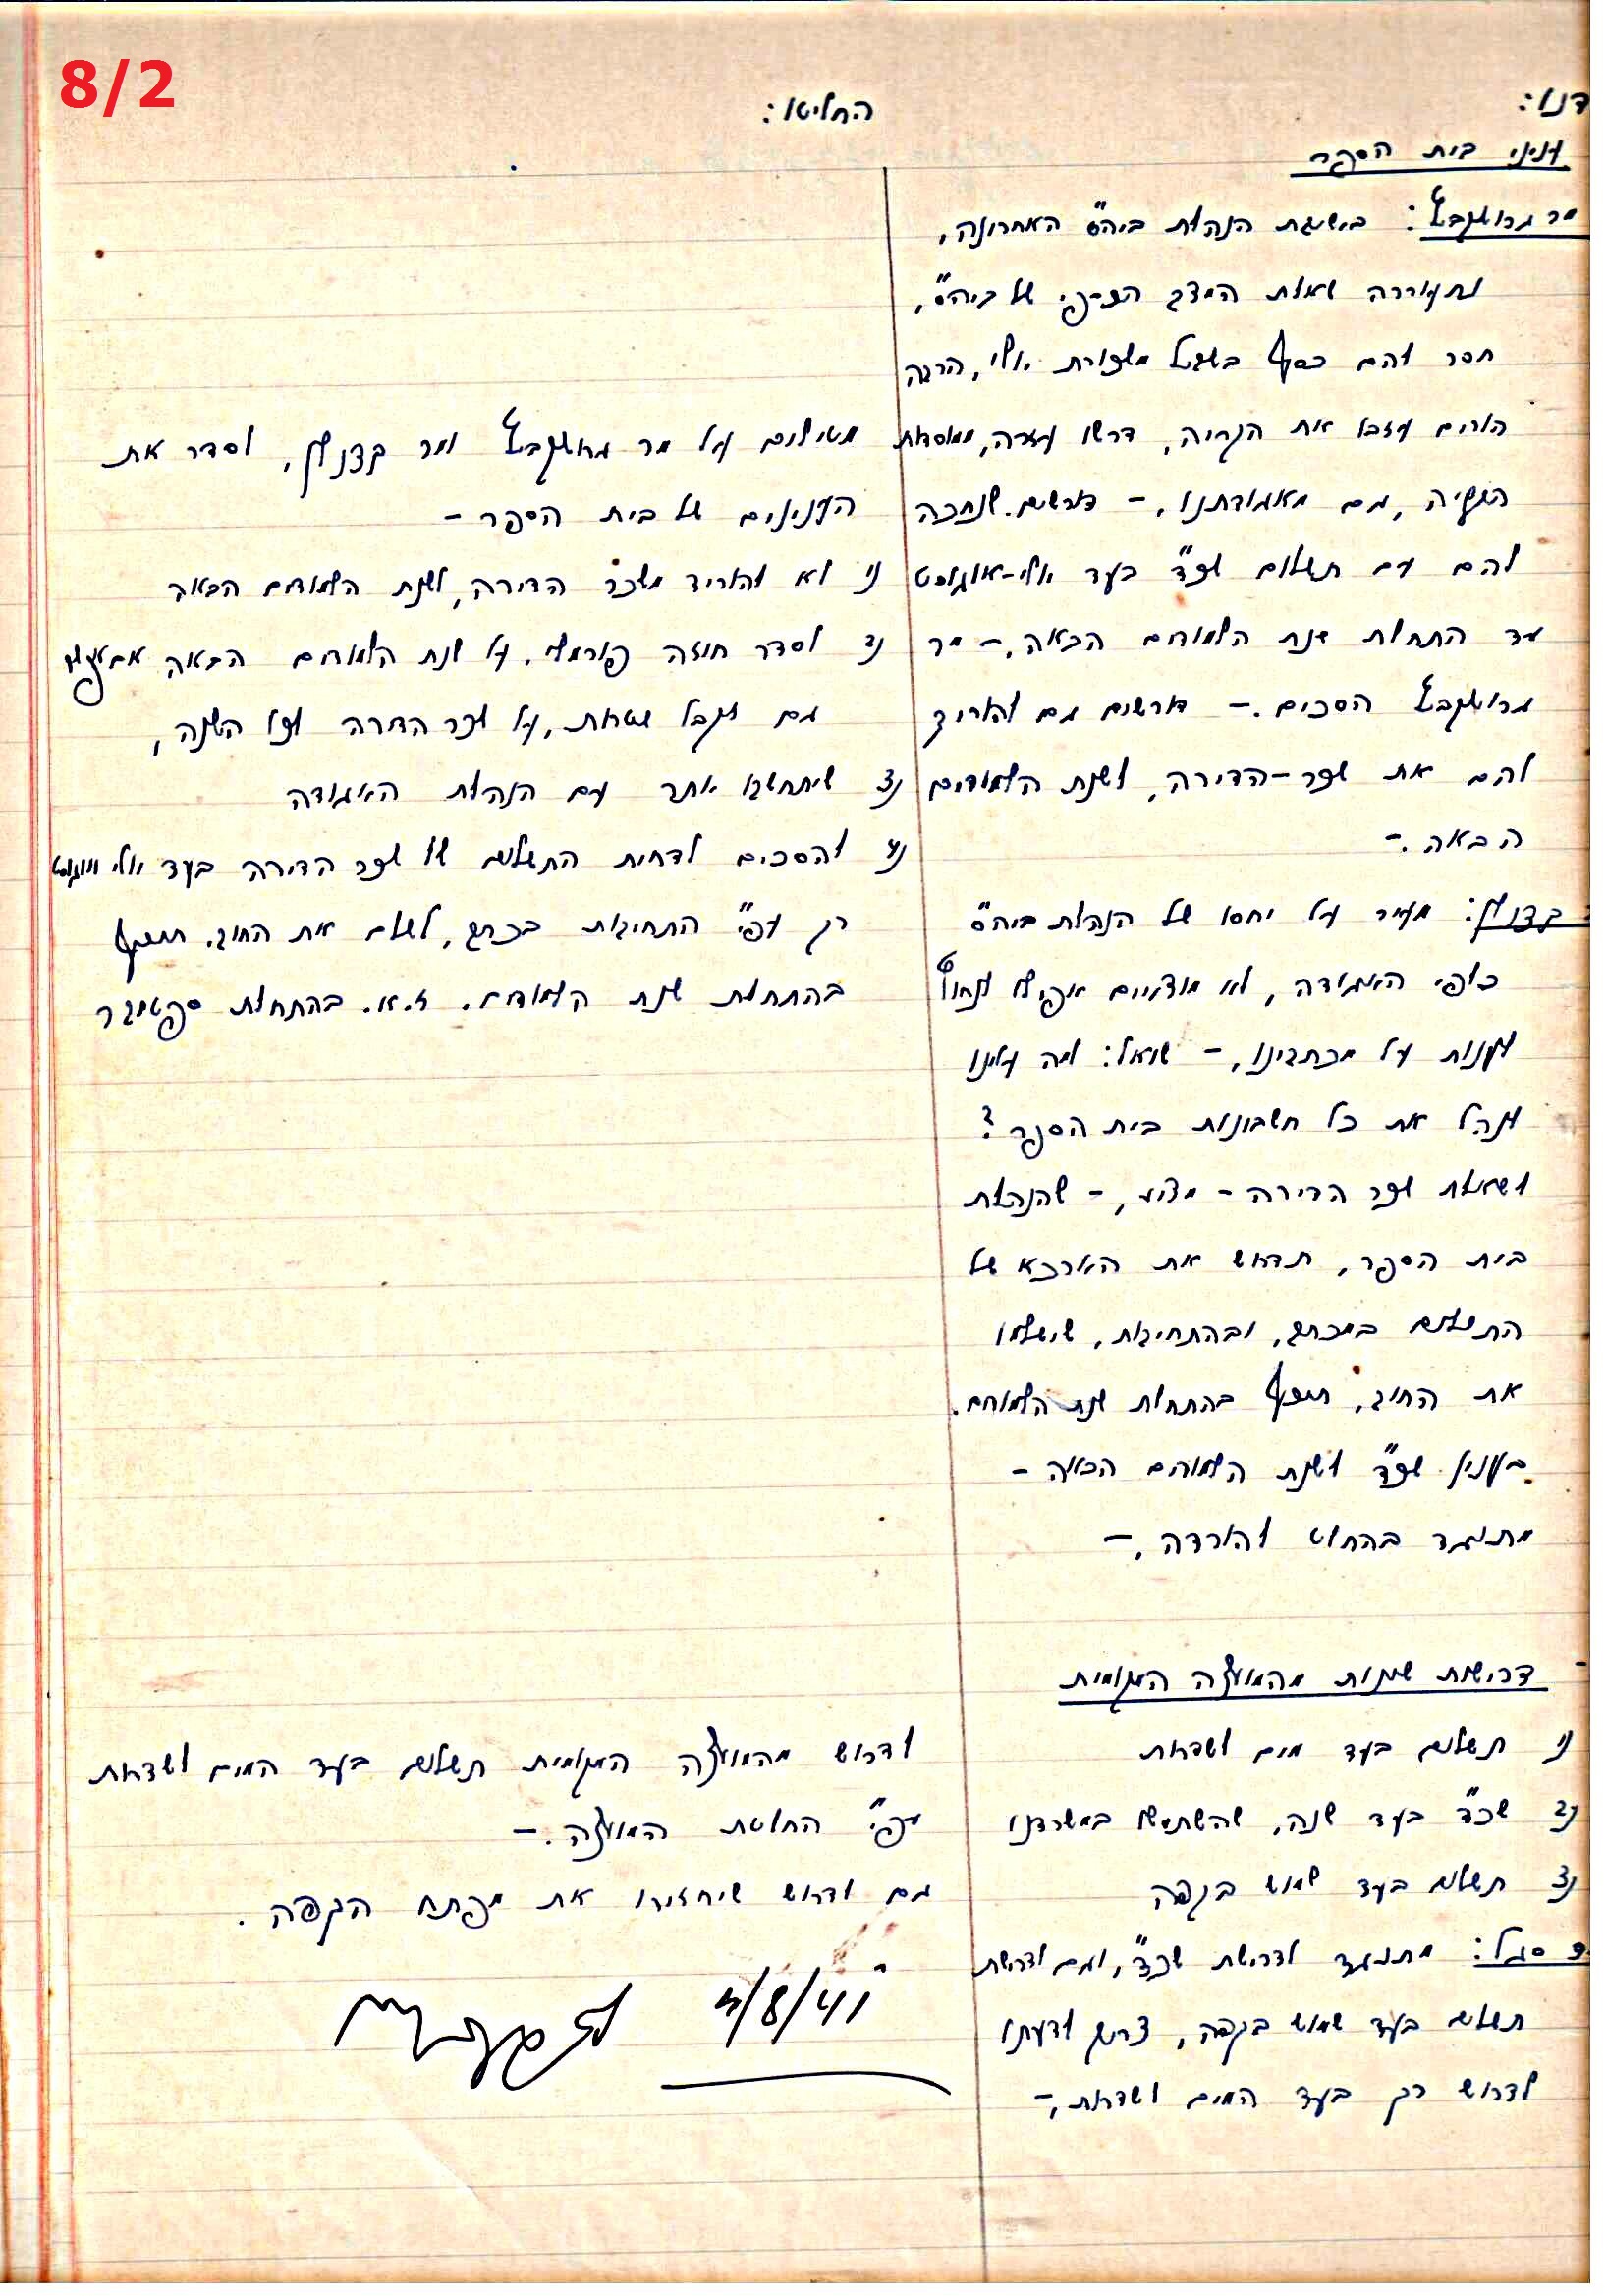 8/2
דנו:
עניני בית הספר
מר גרושקביץ: בישיבת הנהלת ביה"ס האחרונה,
נתעוררה שאלת המצב הכספי של ביה"ס,
חסר להם כסף בשביל משכורת יולי, הרבה
הורים עזבו את הקריה, דרשו עזרה, ממוסדות
הקריה, גם מאגודתנו. – דורשים שנחכה
להם עם תשלום שכ"ד בעד יולי-אוגוסט
עד התחלת שנת הלמודים הבאה. – מר
גרושקביץ הסכים. – דורשים גם להוריד
להם את שכר-הדירה, לשנת הלמודים
הבאה. –
קצנלסון: מעיר על יחסו של הנהלת ביה"ס
כלפי האגודה, לא מוצאים אפילו לנחוץ
לענות על מכתבינו, – שואל: למה עלינו
לנהל את כל חשבונות בית הספר?
לשאלת שכר הדירה – מציע, – שהנהלת
בית הספר, תדרוש את הארכא של
התשלום במכתב, ובהתחיבות, שישלמו
את החוב, תיכף בהתחלת שנת הלמודים.
בענין שכ"ד לשנת הלמודים הבאה –
מתנגד בהחלט להורדה. –
דרישות שונות מהמועצה המקומית
1) תשלום בעד מים לשדרות
2) שכ"ד בעד שנה, שהשתמשו במשרדנו
3) תשלום בעד שמוש בקפה
סגל: מתנגד לדרישת שכ"ד, וגם לדרישת
תשלום בעד שמוש בקפה, צריך לדעתו
לדרוש רק בעד המים לשדרות. –
החליטו:
מטילים על מר גרושקביץ ומר קצנלסון, לסדר את
הענינים של בית הספר –
1) לא להוריד משכר הדירה, לשנת הלמודים הבאה
2) לסדר חוזה פורמלי, על שנת הלמודים הבאה
גם לקבל שטרות, על שכר הדירה לפי השנה,
3) שיתחשבו יותר עם הנהלת האגודה
4) להסכים לדחית התשלום של שכר הדירה בעד יולי אוגוסט
רק עפ"י התחיבות בכתב, לשלם את החוב, תיכף
בהתחלת שנת הלמודים. ז.א. בהתחלת ספטמבר
לדרוש מהמועצה המקומית תשלום בעד המים לשדרות
עפ"י החלטת המועצה. –
גם לדרוש שיחזירו את מפתח הקפה.
4/8/41